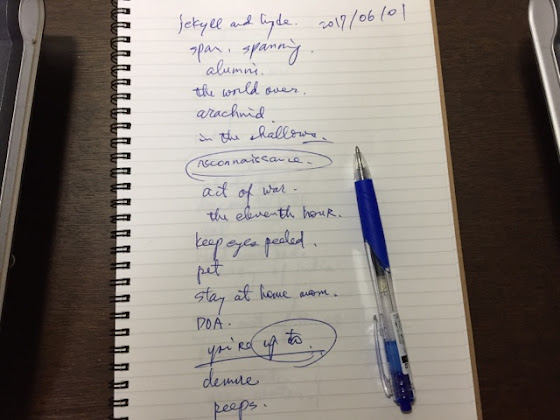 jekyll and hyde. 2017/06/01
span. spanning.
alumni.
the world over.
arachnid.
in the shallows.
reconnaissance.
act of war.
the eleventh hour.
keep eyes peeled.
pet
stay at home mom.
DOA.
up to
demure
peeps.